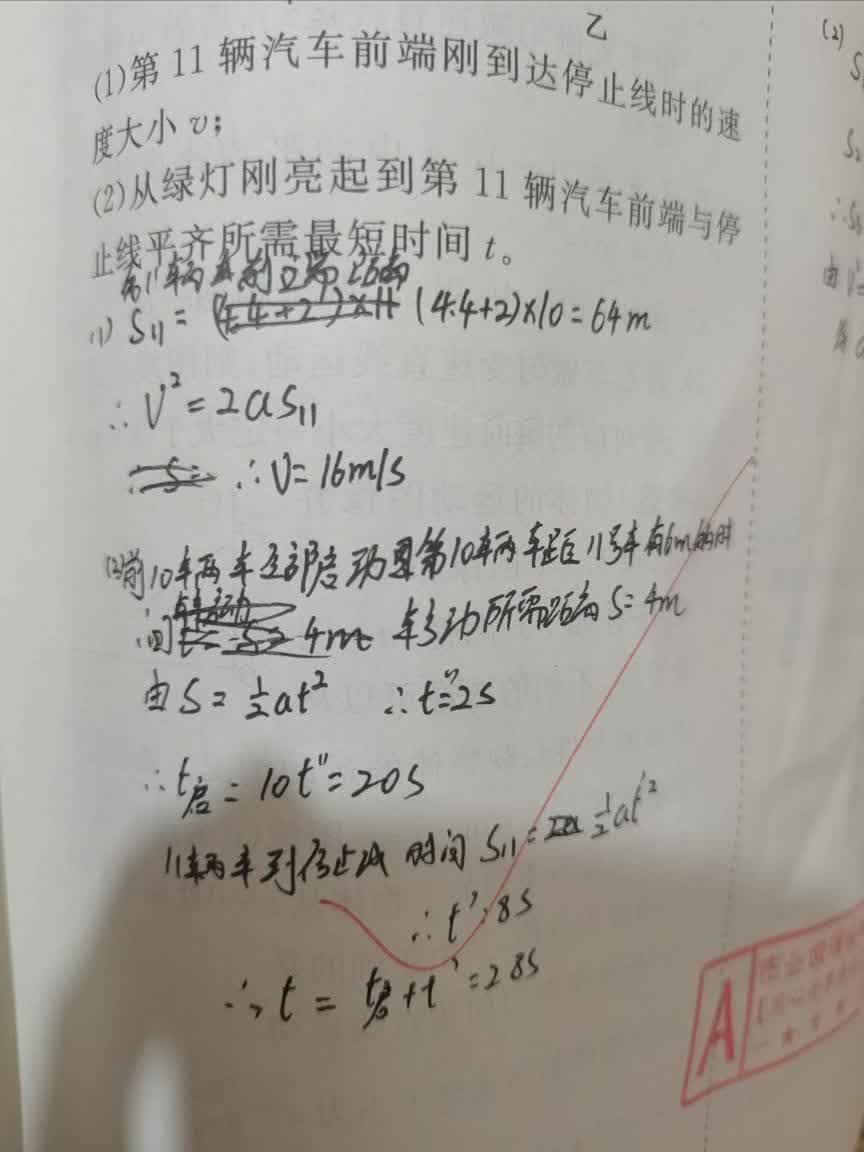 乙
(1)第 11 辆汽车前端刚到达停止线时的速
度大小 v;
(2)从绿灯刚亮起到第 11 辆汽车前端与停
止线平齐所需最短时间 t。
(1) S₁₁ = (4.4+2)×11 (4.4+2)×10=64m
∴ V² = 2aS₁₁
∴ V = 16m/s
(2)前10车辆车全部启动且第10车辆车距11号车有6m的时
间 移动所需距离 S=4m
由 S = ½at² ∴ t"=2s
∴ t启 = 10t" = 20s
11辆车到停止线 时间 S₁₁ = ½at'²
∴ t' = 8s
∴ t = t启+t' = 28s
(2)
A